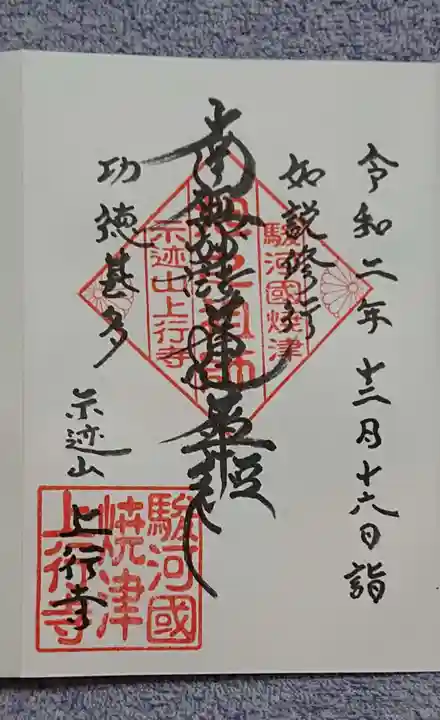 令和二年十二月十六日詣
如説修行
南無妙法蓮華経
功徳甚多
示迹山
上行寺
駿河國焼津
祖師
示迹山上行寺
駿河國
焼津
上行寺